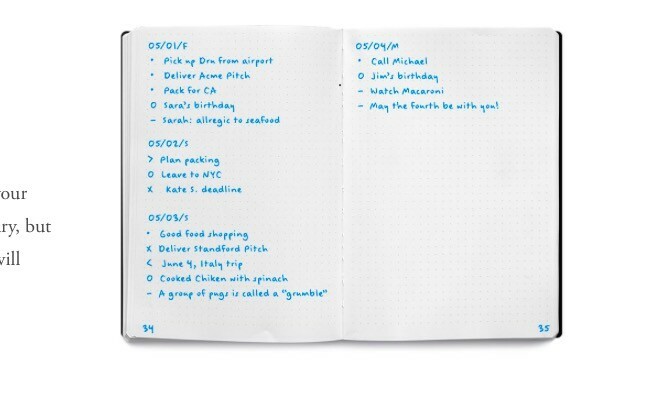 your
ry, but
will
05/01/F
• Pick up Dru from airport
• Deliver Acme Pitch
• Pack for CA
O Sara's birthday
– Sarah: allregic to seafood
05/02/S
> Plan packing
O Leave to NYC
x Kate S. deadline
05/03/S
• Good food shopping
x Deliver Standford Pitch
< June 4, Italy trip
O Cooked Chiken with spinach
– A group of pugs is called a "grumble"
34
05/04/M
• Call Michael
O Jim's birthday
– Watch Macaroni
– May the fourth be with you!
35